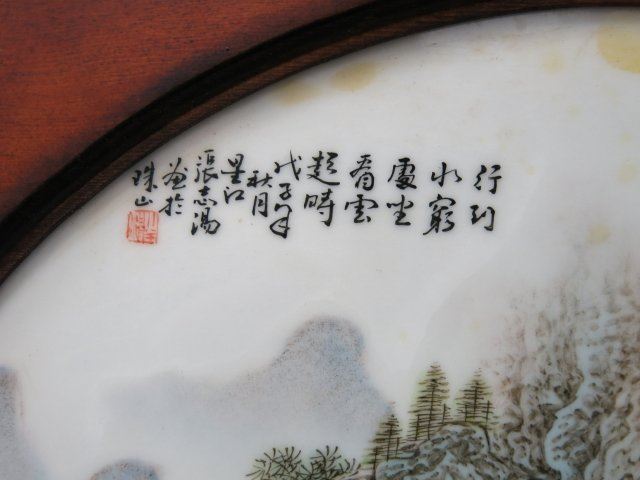 行到
水窮
處坐
看雲
起時
戊子年
秋月
星江
張志湯
畫於
珠山